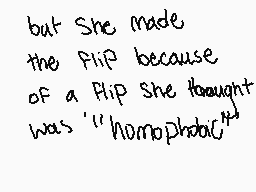 but She made
the flip because
of a flip She thought
was "homophobic"